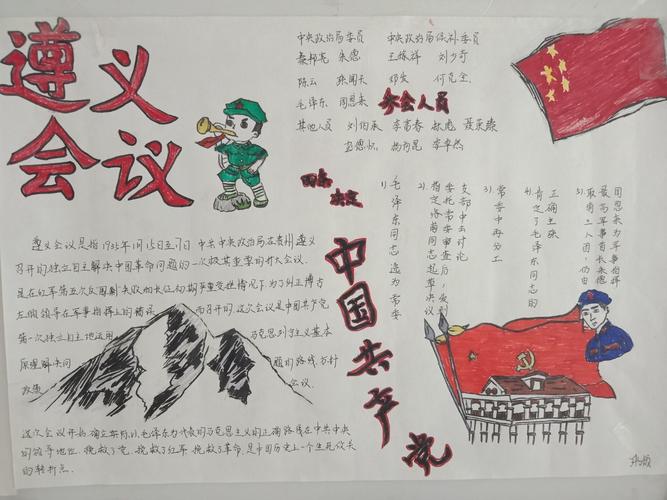 遵义
会议
中央政治局委员 中央政治局候补委员
秦邦宪 朱德 王稼祥 刘少奇
陈云 张闻天 邓发 何克全
毛泽东 周恩来 参会人员
其他人员 刘伯承 李富春 林彪 聂荣臻
彭德怀 杨尚昆 李卓然
四条决定
1) 毛泽东同志选为常委
2) 指定洛甫同志起草决议
委托常委审查后,发到
支部中去讨论
3) 常委中再分工
4) 肯定了毛泽东同志的
正确主张
5) 取消三人团,仍由
最高军事首长朱德
周恩来为军事指挥
中国共产党
遵义会议是指1935年1月15日至17日中共中央政治局在贵州遵义
召开的独立自主解决中国革命问题的一次极其重要的扩大会议。
是在红军第五次反围剿失败和长征初期严重受挫情况下,为了纠正博古
左倾领导在军事指挥上的错误 而召开的.这次会议是中国共产党
第一次独立自主地运用 马克思列宁主义基本
原理解决问 题的路线,方针
政策 会议.
这次会议开始确立实际以毛泽东为代表的马克思主义的正确路线在中共中央
的领导地位. 挽救了党,挽救了红军,挽救了革命,是中国历史上一个生死攸关
的转折点.